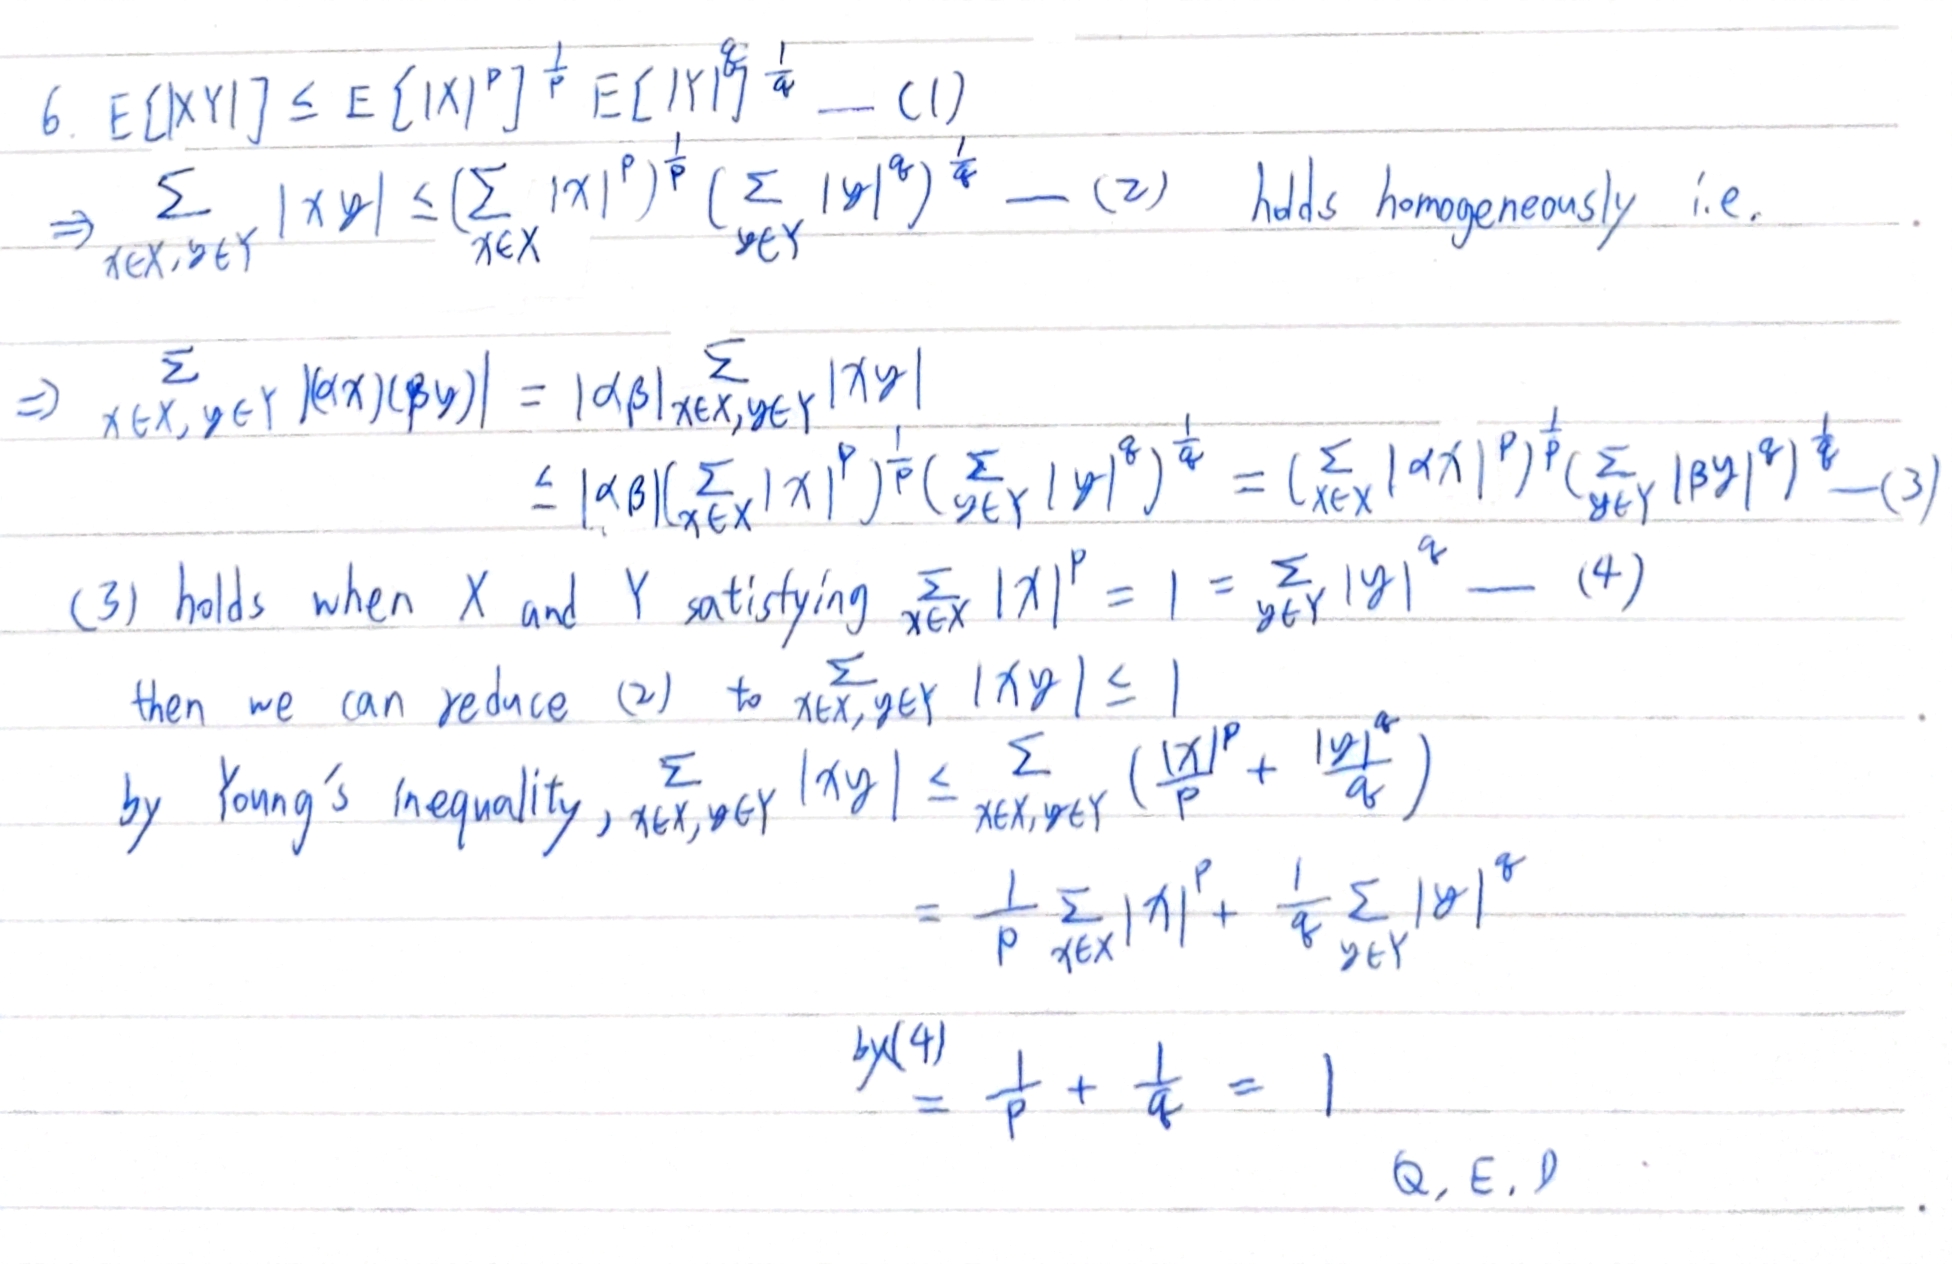 6. E[|XY|] ≤ E[|X|^p]^{1/p} E[|Y|^q]^{1/q} — (1)
⇒ Σ_{x∈X, y∈Y} |xy| ≤ (Σ_{x∈X} |x|^p)^{1/p} (Σ_{y∈Y} |y|^q)^{1/q} — (2) holds homogeneously i.e.
⇒ Σ_{x∈X, y∈Y} |(αx)(βy)| = |αβ| Σ_{x∈X, y∈Y} |xy|
≤ |αβ| (Σ_{x∈X} |x|^p)^{1/p} (Σ_{y∈Y} |y|^q)^{1/q} = (Σ_{x∈X} |αx|^p)^{1/p} (Σ_{y∈Y} |βy|^q)^{1/q} — (3)
(3) holds when X and Y satisfying Σ_{x∈X} |x|^p = 1 = Σ_{y∈Y} |y|^q — (4)
then we can reduce (2) to Σ_{x∈X, y∈Y} |xy| ≤ 1
by Young's inequality, Σ_{x∈X, y∈Y} |xy| ≤ Σ_{x∈X, y∈Y} (|x|^p/p + |y|^q/q)
= 1/p Σ_{x∈X} |x|^p + 1/q Σ_{y∈Y} |y|^q
by(4)
= 1/p + 1/q = 1
Q, E, D